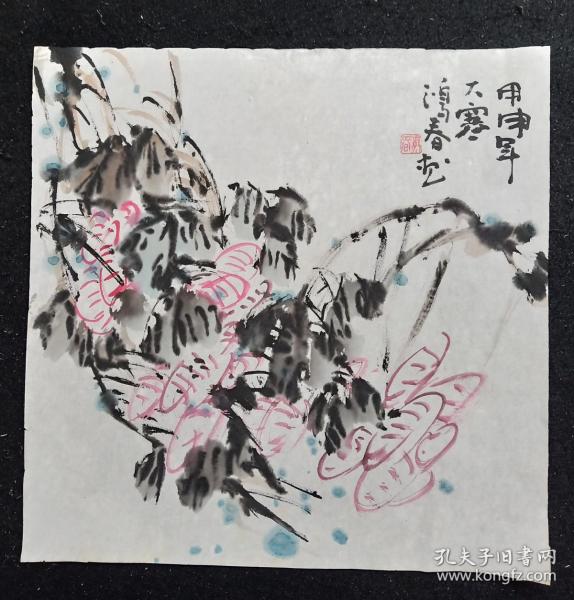 甲申年
大寒
鸿春画
孔夫子旧书网
www.kongfz.com